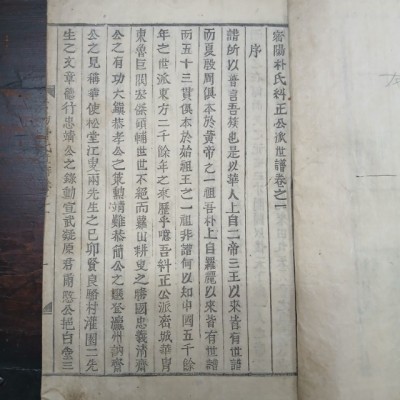 密陽朴氏糾正公派世譜卷之一
序
譜所以普言吾族也是以華人上自二帝三王以來皆有世譜
而夏殷周俱本於黃帝之一祖吾朴上自羅麗以來皆有世譜
而五十三貫俱本於始祖王之一祖非譜何以知中國五千餘
年之世派東方二千餘年之來歷乎噫吾糾正公派密城華胄
東魯巨閥安傑領輔世世不絕而麗山耕叟之勝國忠義清齊
公之有功大鎭恭孝公之策勳靖難恭簡公之選登瀛州訥齋
公之見稱華使松堂江叟兩先生之己卯賢良勝村灌園二先
生之文章德行忠靖公之錄勳宣武凝原君肅愍公挹白堂三